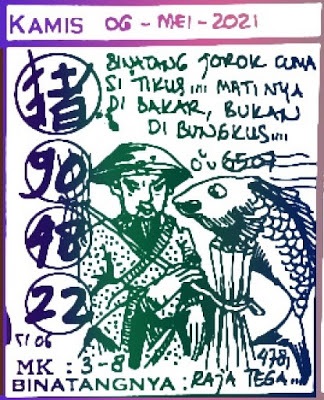 KAMIS 06 - MEI - 2021
猪
BINATANG JOROK CUMA
SI TIKUS.... MATINYA
DI BAKAR, BUKAN
DI BUNGKUS....
6507
90
48
22
5106
MK : 3-8
478,
BINATANGNYA : RAJA TEGA....